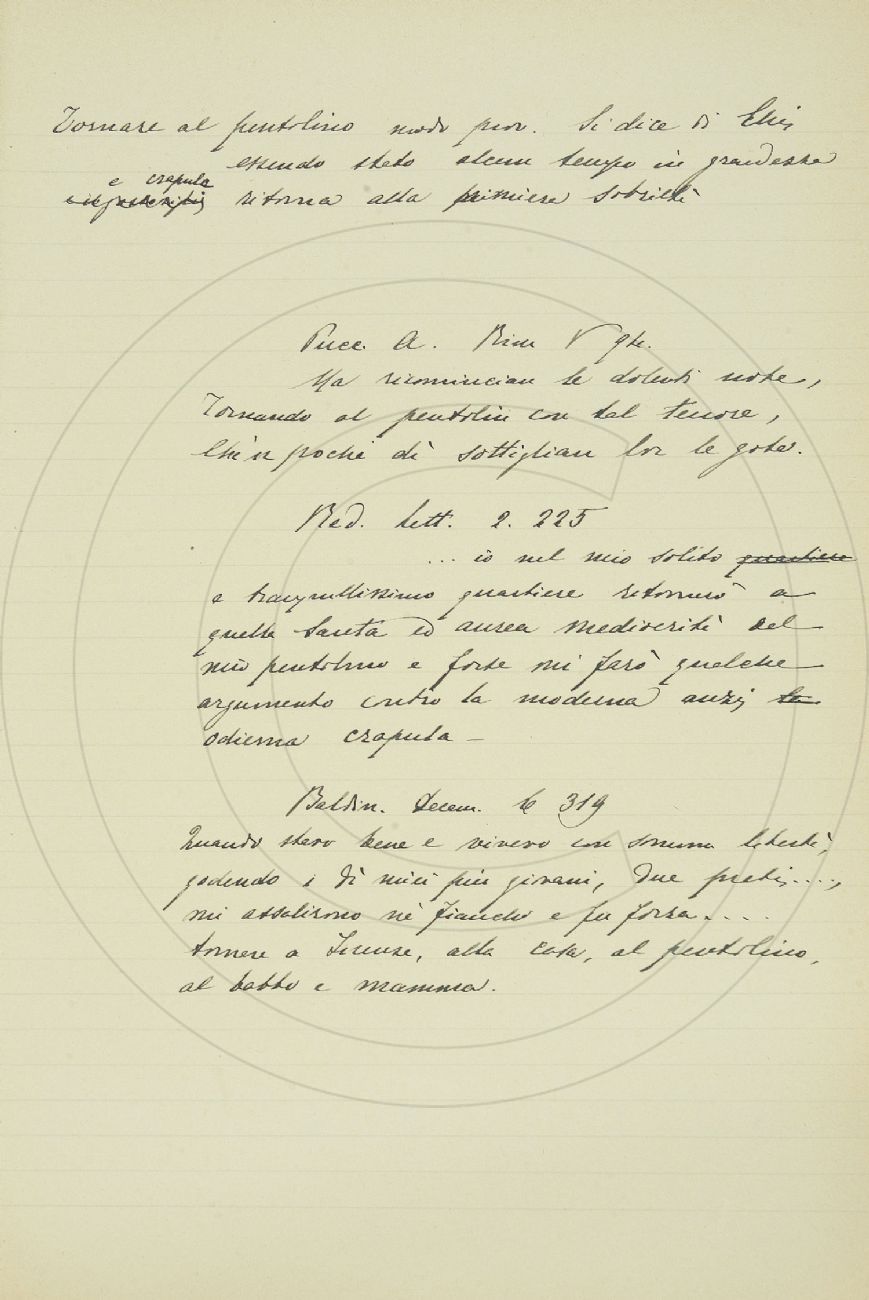 Tornare al pentolino modo prov. Si dice di Chi,
essendo stato alcun tempo in grandezza
e crapula
ritorna alla primiera sobrietà
Pucc. A. Rim V gh.
Ma ricomincian le dolenti note,
Tornando al pentolin con tal tenore,
Che 'n pochi dì sottiglian lor le gote.
Red. Lett. 2. 225
... io nel mio solito quartiere
e tranquillissimo quartiere ritornerò a
quella santa ed aurea mediocrità del
mio pentolino e forse mi farò qualche
argumento contro la moderna anzi la
odierna crapula –
Baldin. Decem. 319
Quando stavo bene e vivevo con somma libertà,
godendo i dì miei più giovani, due preti....,
mi assalirono nè fianchi e fu forza....
tornare a Firenze, alla casa, al pentolino,
al babbo e mamma.